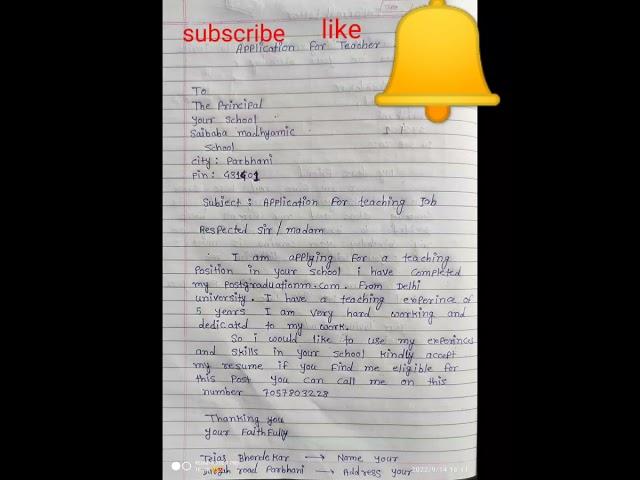 subscribe like
Application for Teacher
To
The Principal
your school
Saibaba madhyamic
school
city: Parbhani
Pin: 431401
Subject: Application for teaching Job
Respected sir/madam
I am applying for a teaching
Position in your school i have completed
my postgraduationm.com. From Delhi
university. I have a teaching experince of
5 years I am very hard working and
dedicated to my work.
So i would like to use my experinces
and skills in your school kindly accept
my resume if you find me eligible for
this Post you can call me on this
number 7057803228
Thanking you
your Faithfully
Tejas Bhordekar → Name your
road Parbhani → Address your
2022/9/14 16:11